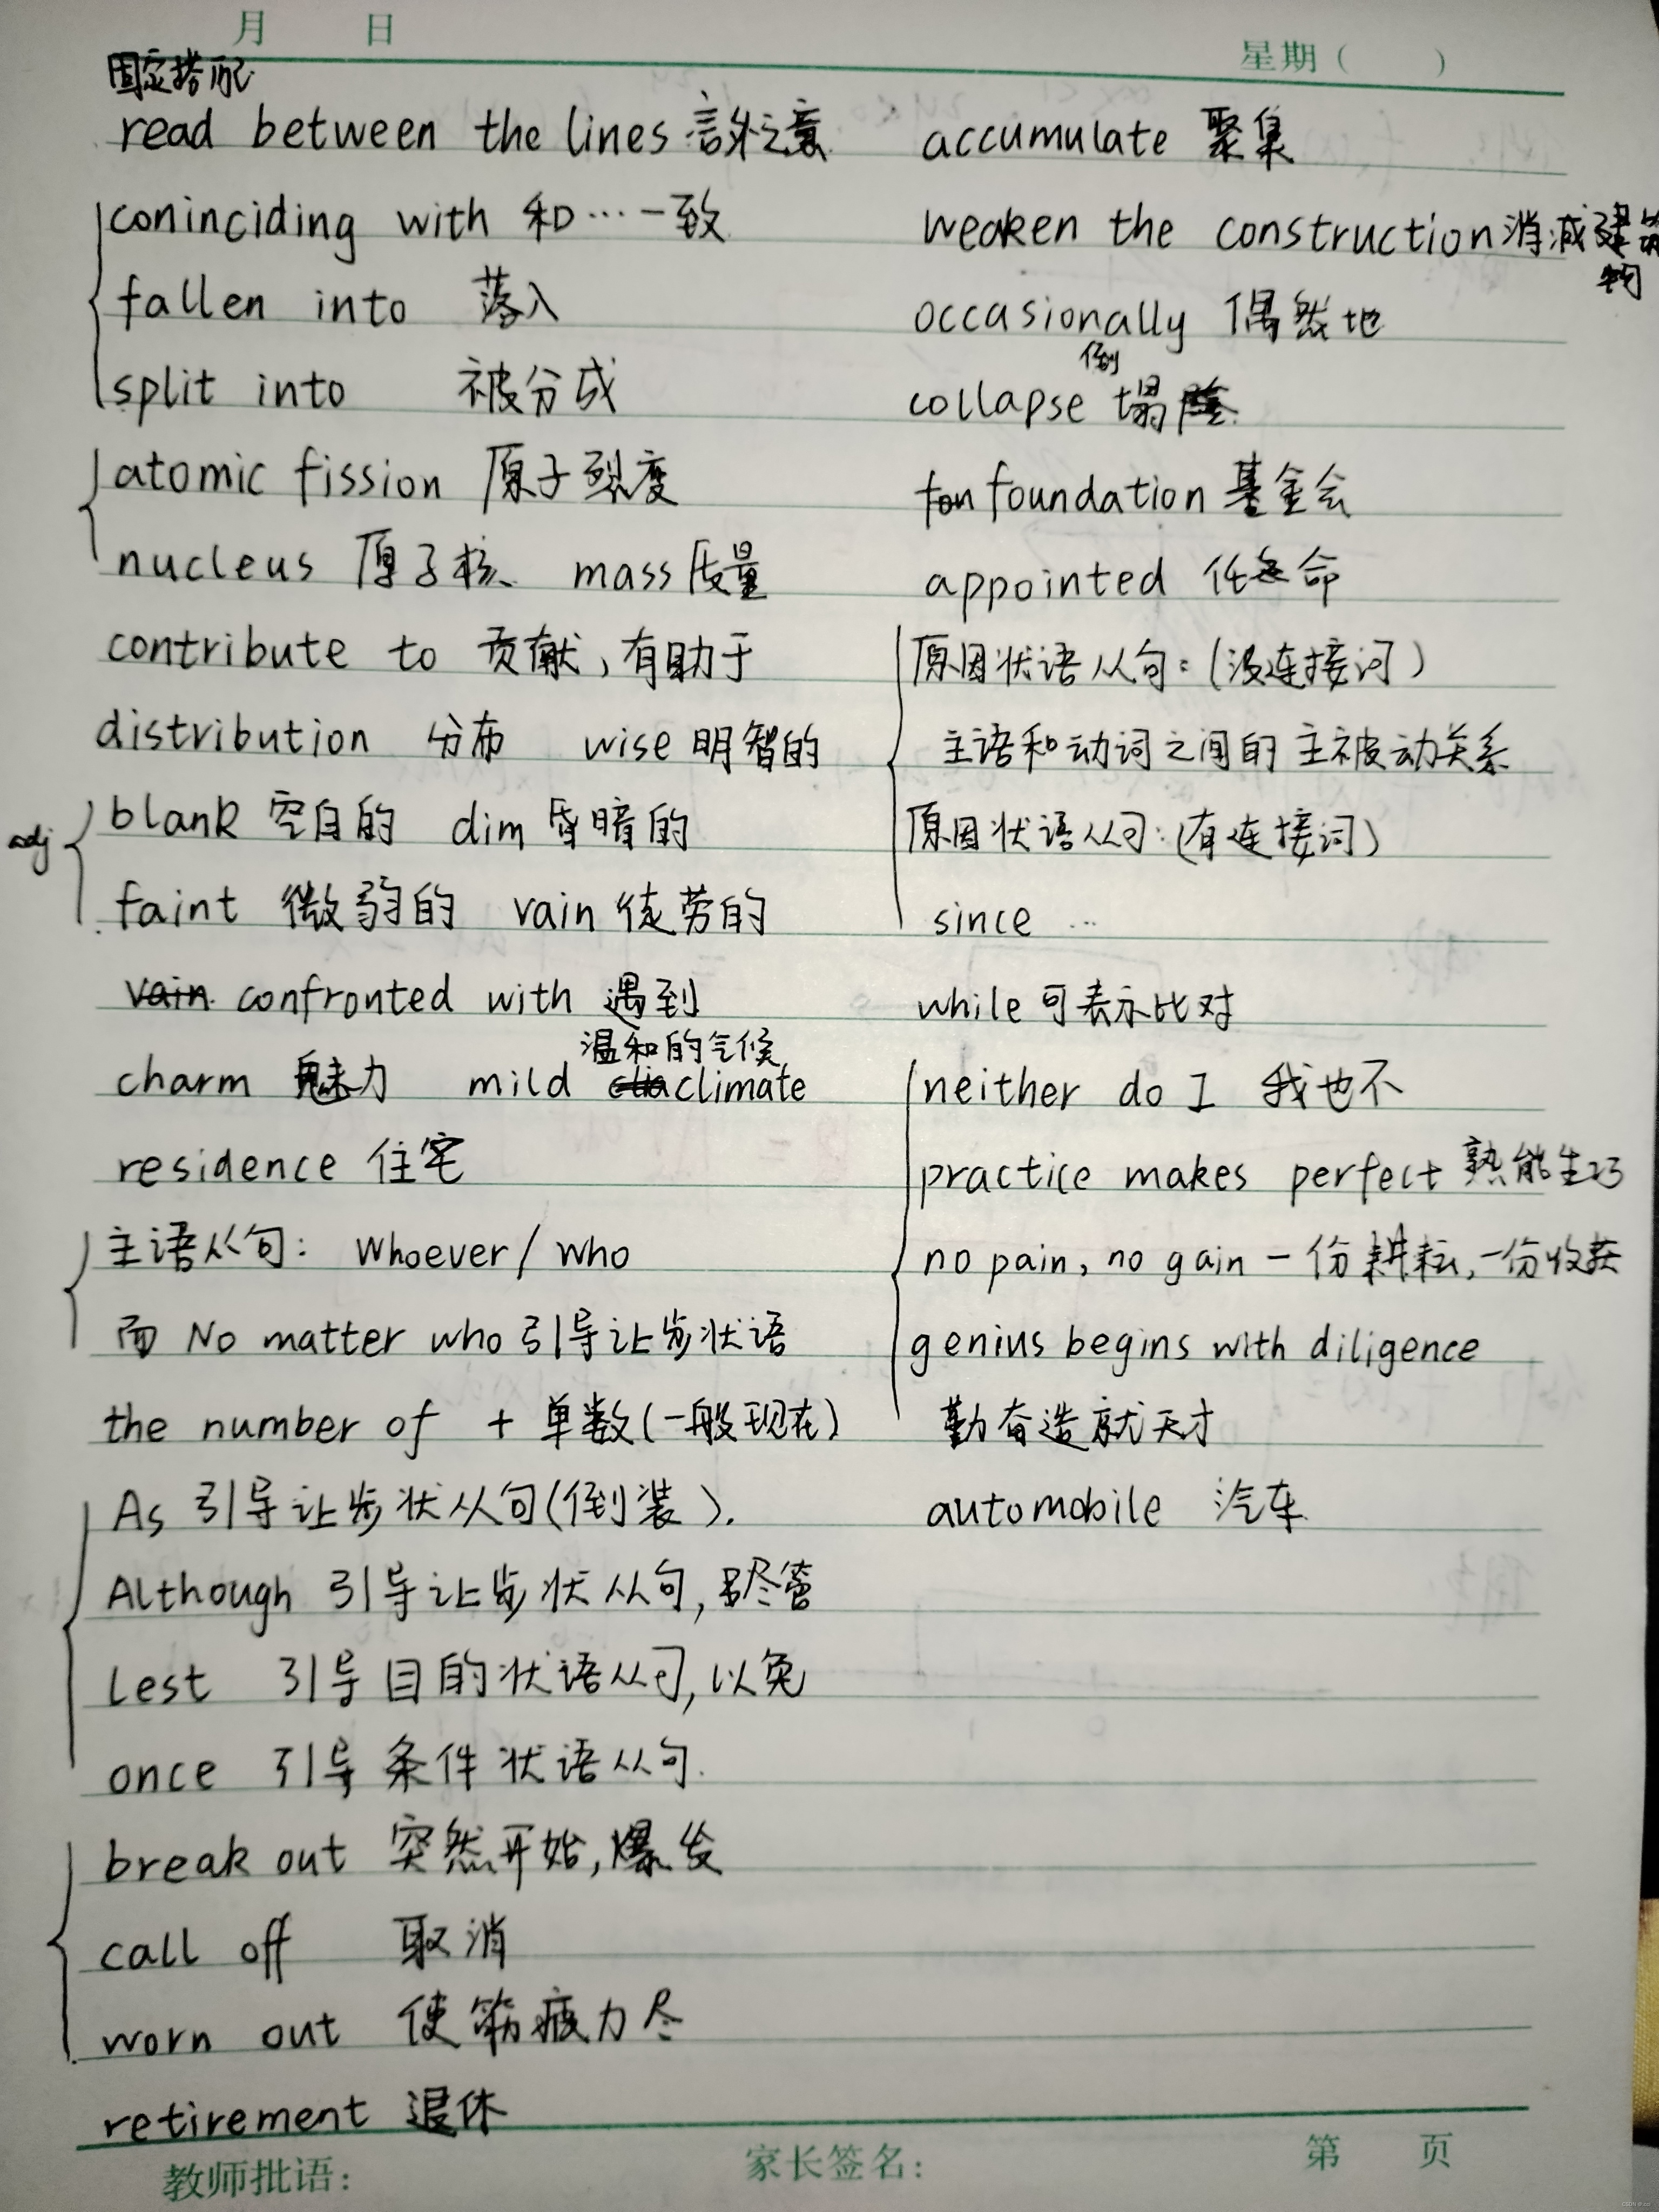 月 日 星期( )
固定搭配
read between the lines 言外之意
coninciding with 和…一致
fallen into 落入
split into 被分成
atomic fission 原子裂度
nucleus 原子核 mass 质量
contribute to 贡献,有助于
distribution 分布 wise 明智的
adj
blank 空白的 dim 昏暗的
faint 微弱的 vain 徒劳的
vain confronted with 遇到
温和的气候
charm 魅力 mild climate
residence 住宅
主语从句: Whoever/ who
而 No matter who 引导让步状语
the number of + 单数(一般现在)
As 引导让步状从句(倒装).
Although 引导让步状从句,尽管
Lest 引导目的状语从句,以免
once 引导条件状语从句.
break out 突然开始,爆发
call off 取消
worn out 使筋疲力尽
retirement 退休
accumulate 聚集
weaken the construction 消减建筑
物
occasionally 偶然地
倒
collapse 塌
fon foundation 基金会
appointed 任命
原因状语从句:(没连接词)
主语和动词之间的主被动关系
原因状语从句:(有连接词)
since ...
while 可表示比对
neither do I 我也不
practice makes perfect 熟能生巧
no pain, no gain 一份耕耘,一份收获
genius begins with diligence
勤奋造就天才
automobile 汽车
教师批语: 家长签名: 第 页